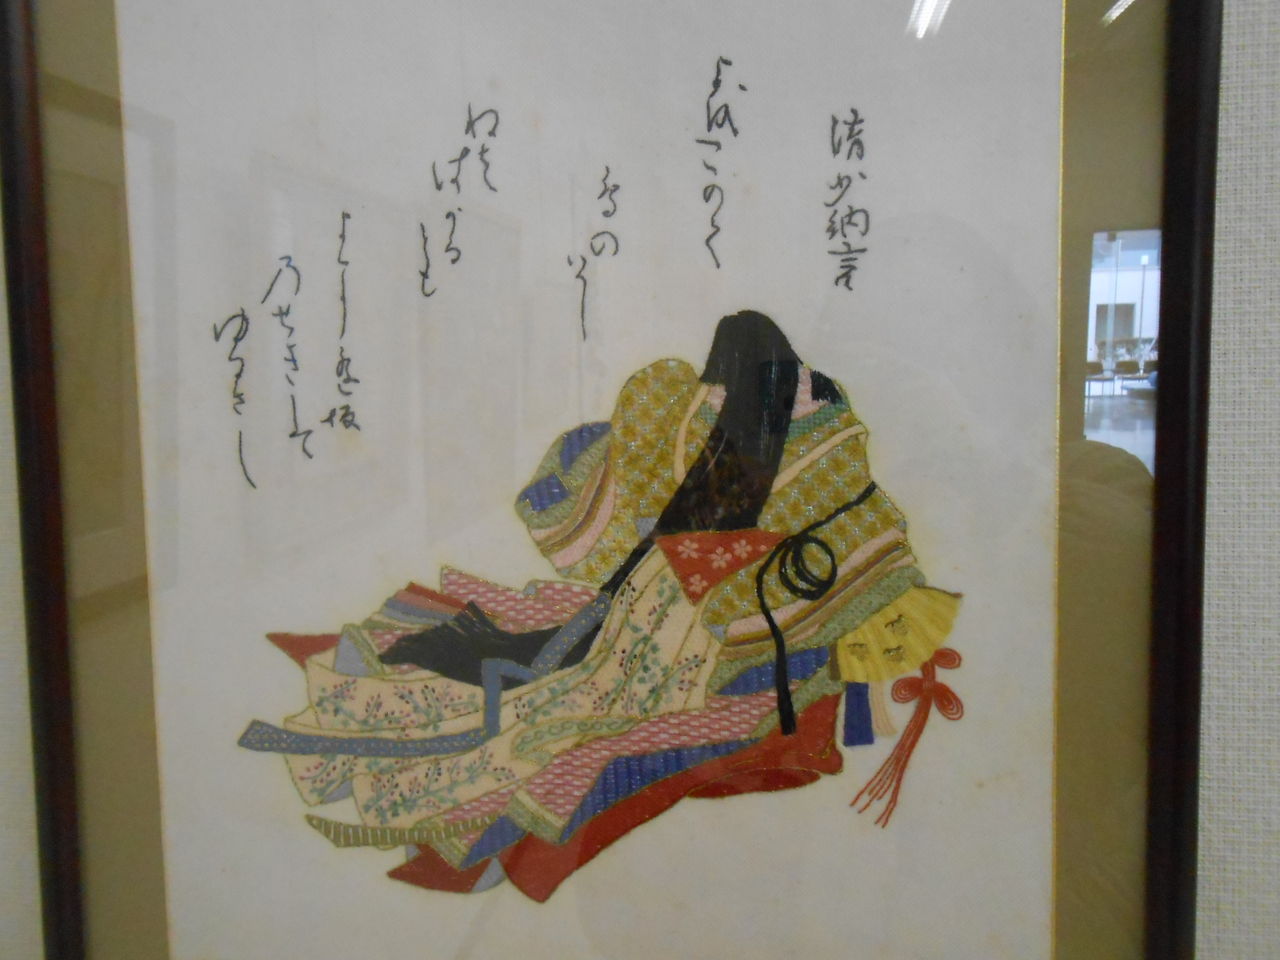 清少納言
よをこめて
鳥の
そら
ねは
はかる
とも
よに逢坂
乃せきは
ゆるさし